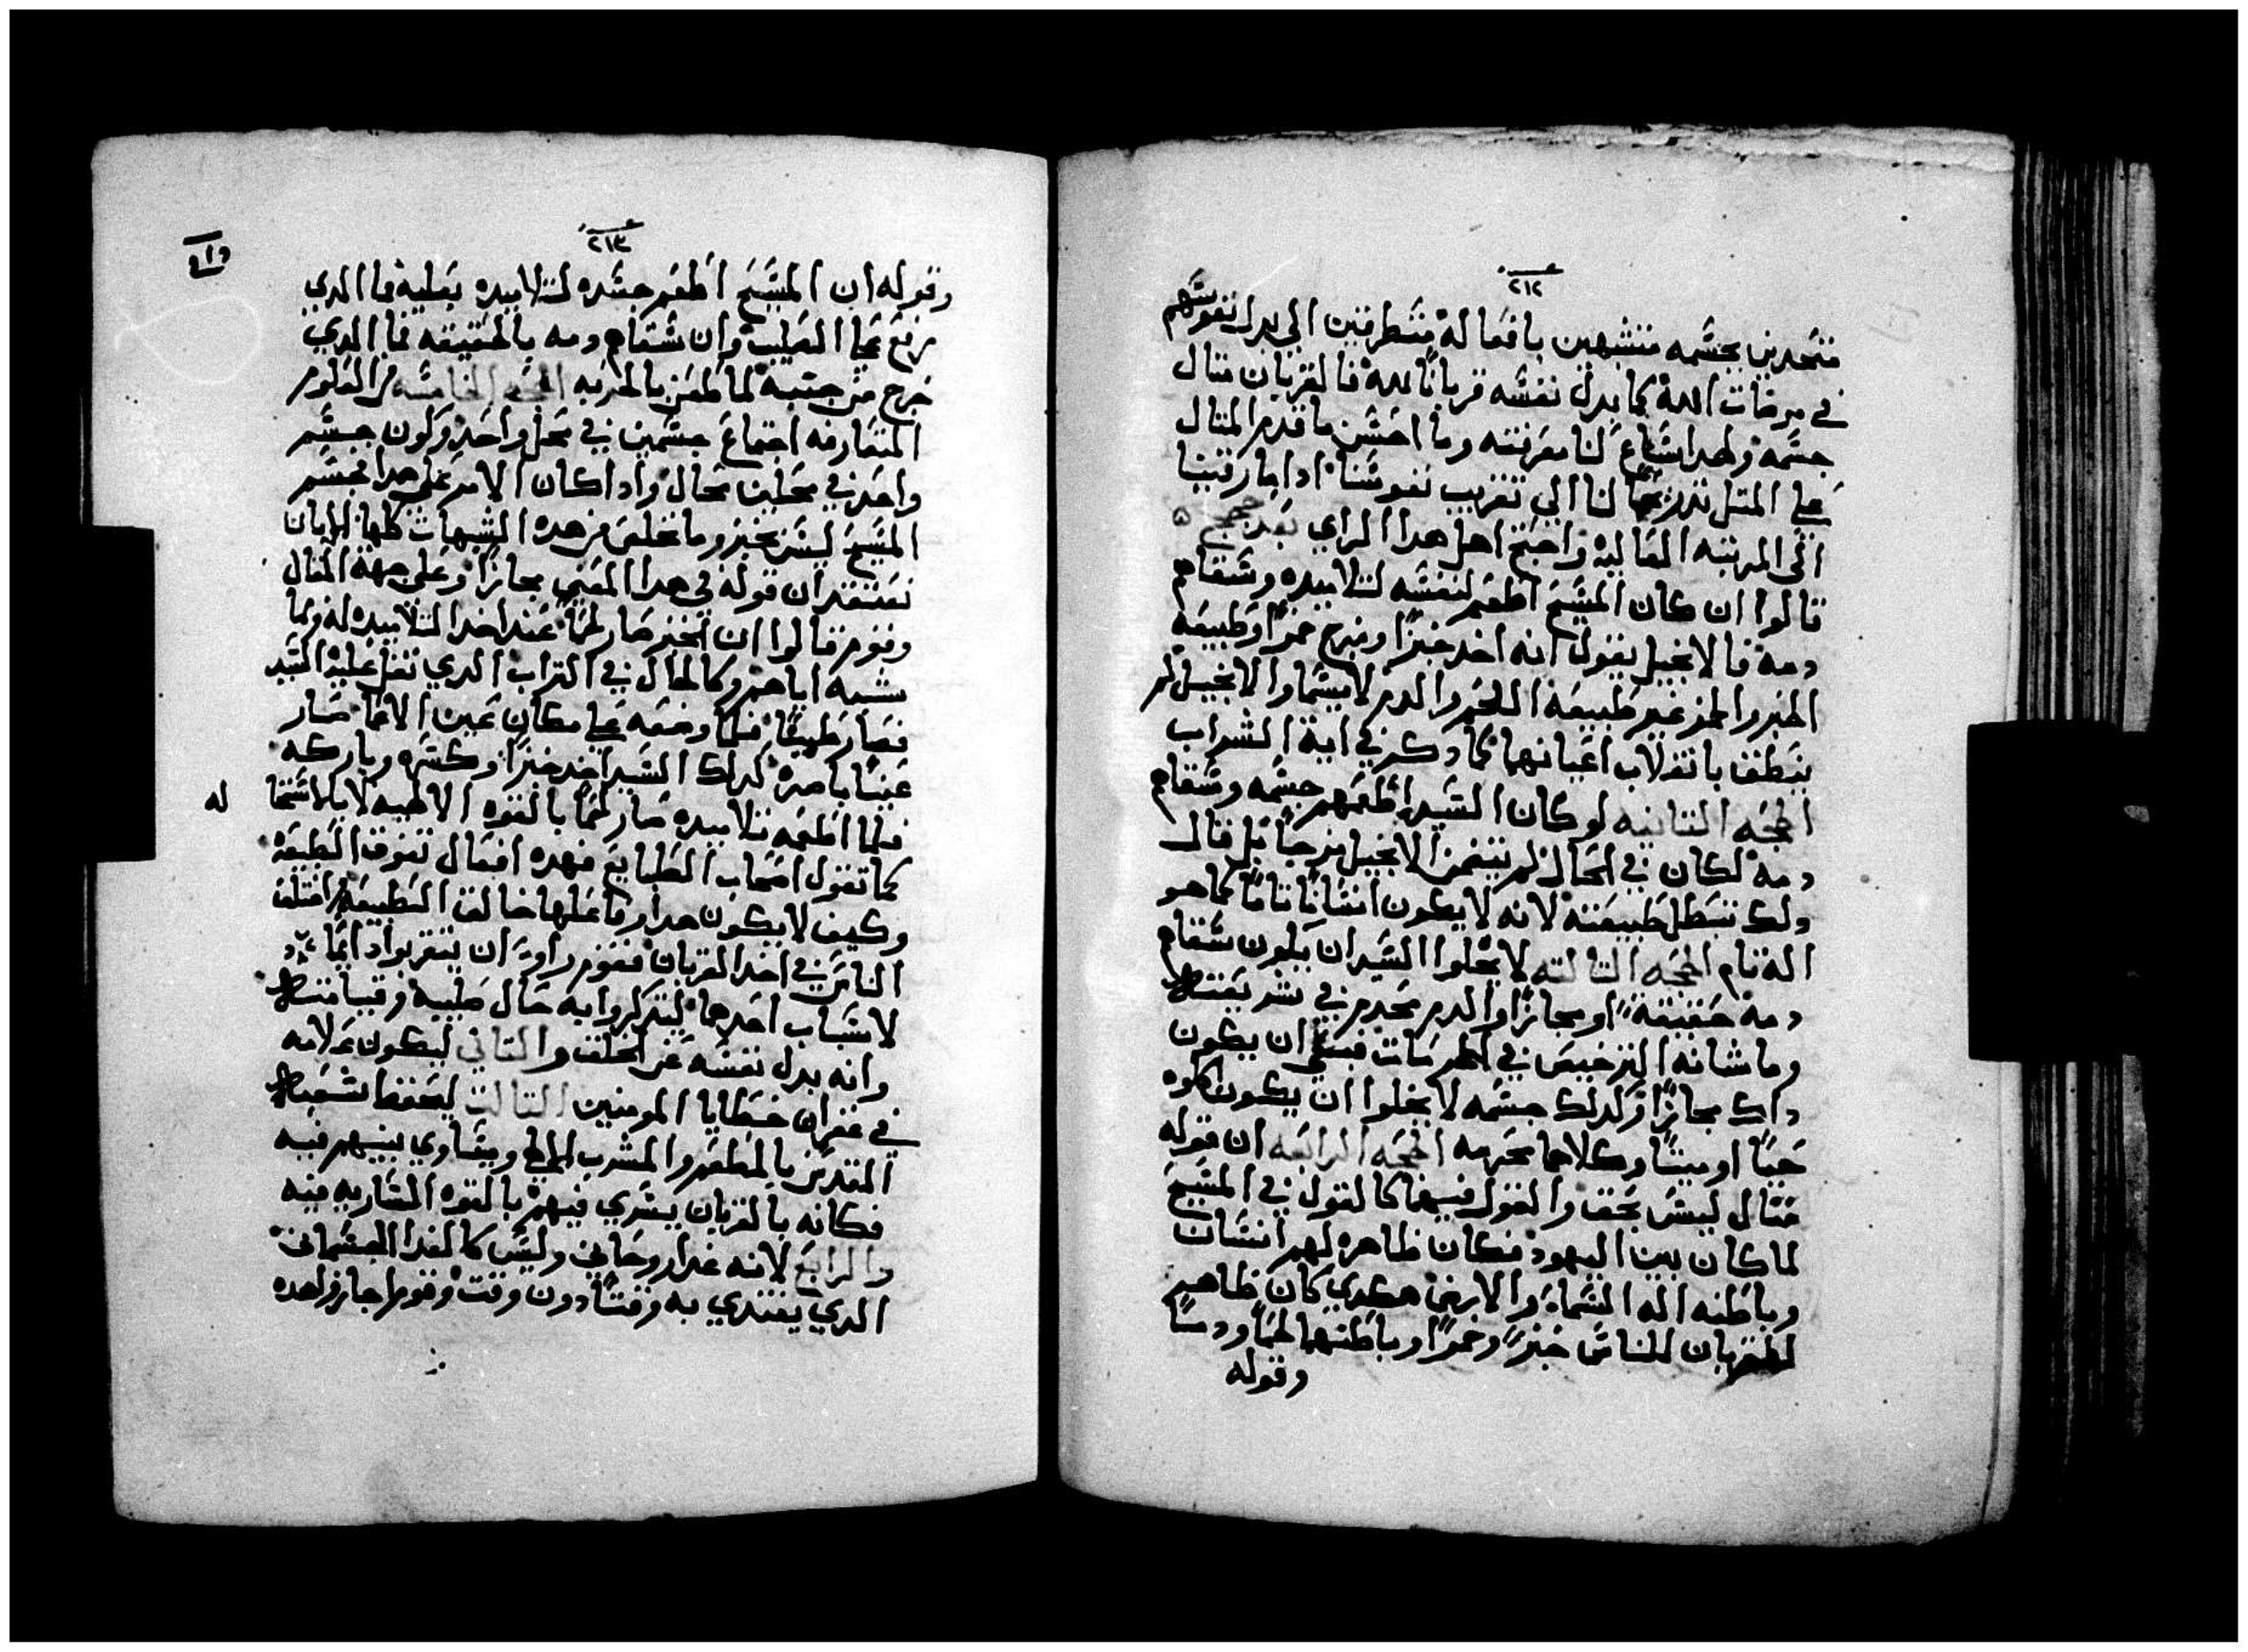 ٢١٢
متحدين بجسمه متشبهين بافعاله متطرقين الي بدل نفوسهم
في مرضات الله كما بدل نفسه قربانًا لله فالقربان مثال
جسمه ولهدا شاع لنا معرفته وما احسن ما قدم المثال
علي المثل تدريجًا لنا الي تقريب نفوسنا ادا ما رقينا
الي المرتبه العاليه واحتج اهل هدا الراي بعد حجج ٥
قالوا ان كان المسيح اطعم لنفسه لتلاميده وسقاهم
دمه فالانجيل يقول انه اخد خبزًا ومزج خمرًا وطبيعه
الخبز والخمر غير طبيعه اللحم والدم لا سيما والانجيل لم
ينطق بانقلاب اعيانهما كما دكر في اية الشراب
الحجه التانيه لو كان السيد اطعمهم جسمه وسقاهم
دمه لكان في الحال لم يتضمن الانجيل مزجًا بل قال
ولك تبطل طبيعته لانه لا يكون انسانًا تامًا كما هو
اله تام الحجه التالته لا يخلوا السيد ان يكون سقاهم
دمه حقيقة او مجازًا والدم محرم في شريعته
وما شانه الترخيص في المحرمات فبقي ان يكون
داك مجازًا وكدلك جسمه لا يخلوا ان يكون اكلوه
حيًا او ميتًا وكلاهما محرمه الحجه الرابعه ان قوله
مثال ليس بحق والقول فيهما كالقول في المسيح
لما كان بين اليهود فكان ظاهره لهم انسان
وباطنه اله السماء والارض هكدي كان ظاهر
القربان للناس خبزًا وخمرًا وباطنهما لحمًا ودمًا
وقوله
٢١٣
وقوله ان المسيح اطعم جسده لتلاميده بعليه فما الدي
رفع علي الصليب وان سقاهم دمه بالحقيقه فما الدي
خرج من جنبه لما طعن بالحربه الحجه الخامسه من العلوم
المتعارفه اجتماع جسمين في محل واحد وكون جسم
واحد في محلين محال وادا كان الامر علي هدا فجسم
المسيح ليس بخبز وما تخلص من هده الشبهات كلها الا بان
نعتقد ان قوله في هدا المعني مجازًا وعلي جهة المثال
وقوم قالوا ان الخبز صار لحمًا عند اخد التلاميده له ولما
شبه اياهم وكالحال في التراب الدي تفل عليه السيد
فصار طينًا فلما وضعه علي مكان عين الاعما صار
عينًا باصره كدلك السيد اخد خبزًا وكسره وباركه
فلما اطعمه تلاميده صار لحمًا بالقوه الالهيه لا بالاستحا
له
كما تقول اصحاب الطبايع فهده افعال تفوق الطبيعه
وكيف لا يكون هدا وفاعلها خالق الطبيعه واختلف
الناس في اخد القربان فقوم راوا ان يتقربوا دايمًا
لاسباب احدها ليتدكروا به حال صلبه وقيامته
وانه بدل نفسه عن الخلق والتاني ليكون علامه
في غفران خطايا المومنين التالت ليحفظ شعبه
المقدس بالمطعم والمشرب الملح ويتساوي بينهم فيه
فكانه بالقربان يسري فيهم بالقوه الساريه فيه
والرابع لانه غدا روحاني وليس كالغدا الجسماني
الدي يغتدي به وقتًا دون وقت وقوم اجازوا هده